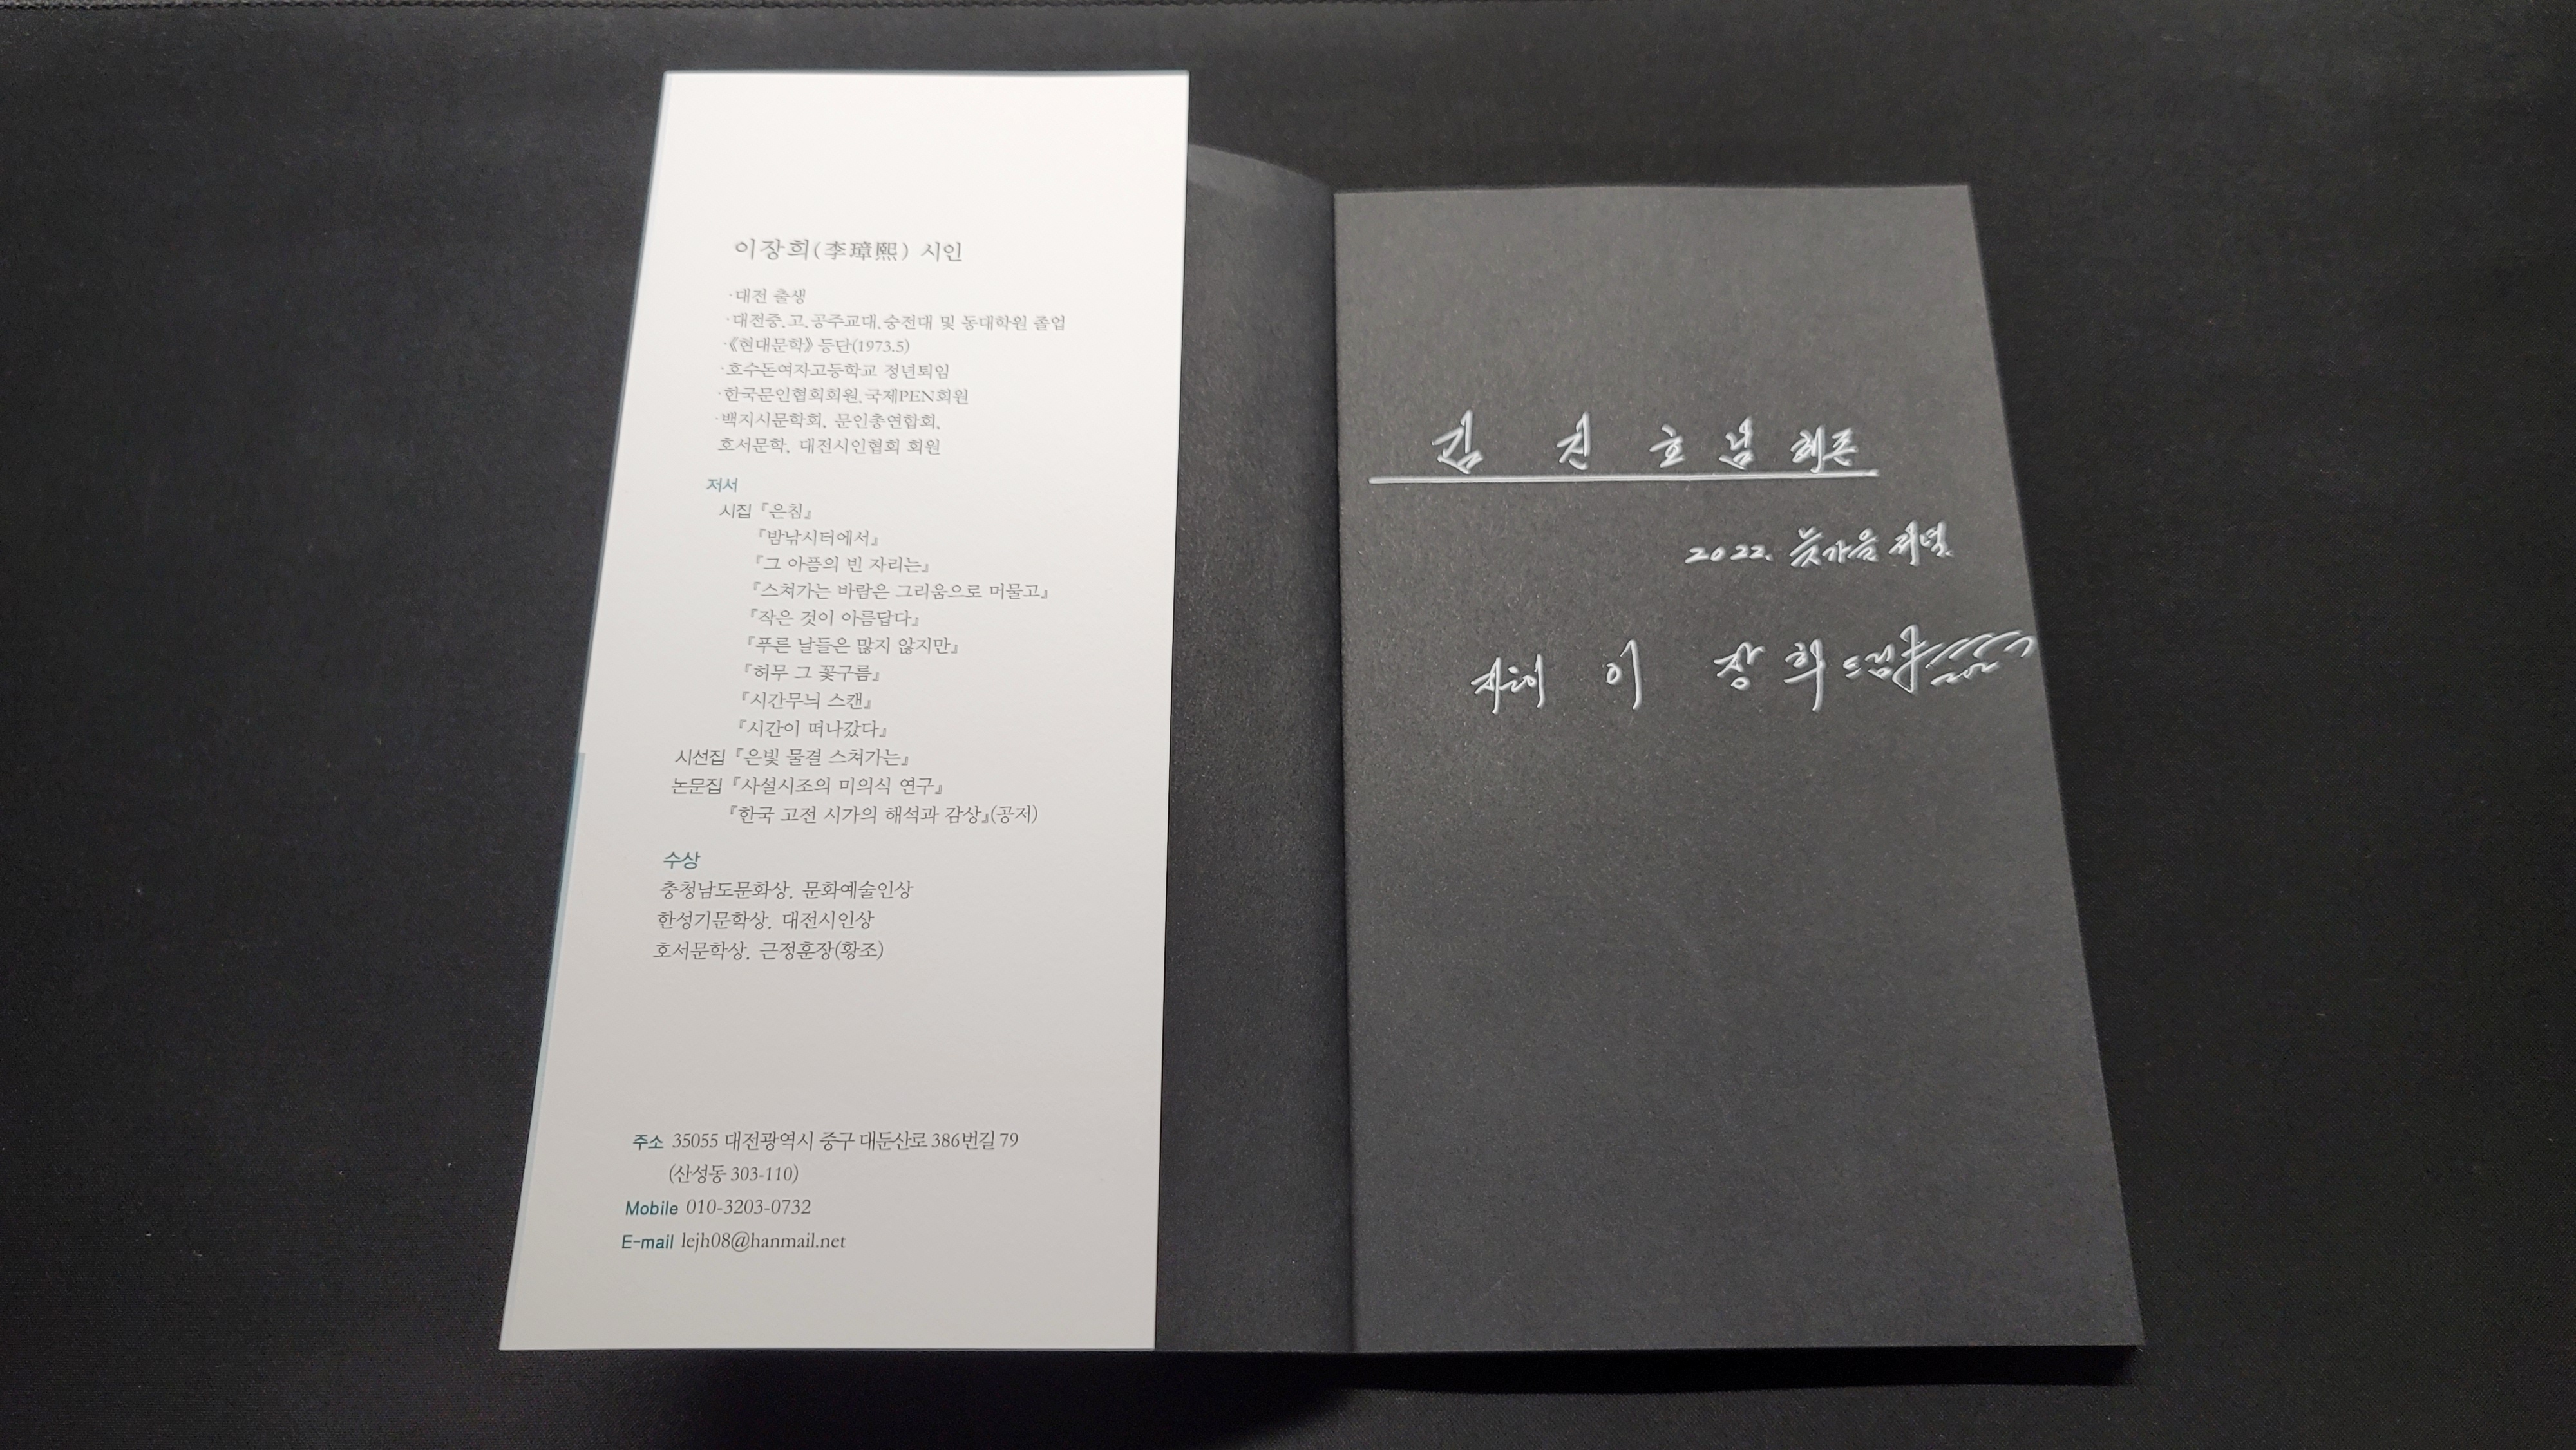 이장희(李璋熙) 시인
·대전 출생
·대전중.고.공주교대.숭전대 및 동대학원 졸업
·《현대문학》 등단(1973.5)
·호수돈여자고등학교 정년퇴임
·한국문인협회회원.국제PEN회원
·백지시문학회, 문인총연합회,
호서문학, 대전시인협회 회원
저서
시집 『은침』
『밤낚시터에서』
『그 아픔의 빈 자리는』
『스쳐가는 바람은 그리움으로 머물고』
『작은 것이 아름답다』
『푸른 날들은 많지 않지만』
『허무 그 꽃구름』
『시간무늬 스캔』
『시간이 떠나갔다』
시선집 『은빛 물결 스쳐가는』
논문집 『사설시조의 미의식 연구』
『한국 고전 시가의 해석과 감상』(공저)
수상
충청남도문화상. 문화예술인상
한성기문학상. 대전시인상
호서문학상. 근정훈장(황조)
주소 35055 대전광역시 중구 대둔산로 386번길 79
(산성동 303-110)
Mobile 010-3203-0732
E-mail lejh08@hanmail.net
김 진 호 님 혜존
2022. 늦가을 저녁
지은이 이 장 희 드림